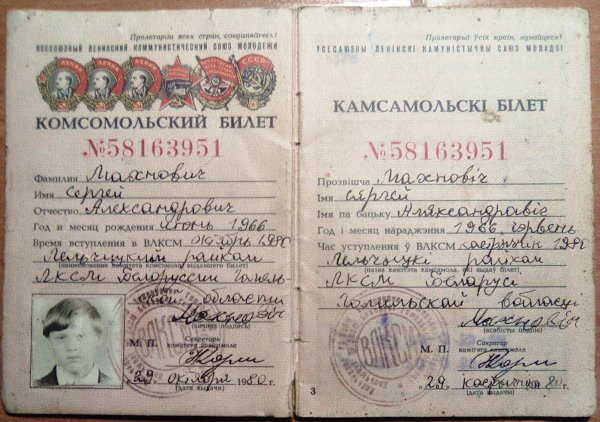 Пролетарии всех стран, соединяйтесь!
ВСЕСОЮЗНЫЙ ЛЕНИНСКИЙ КОММУНИСТИЧЕСКИЙ СОЮЗ МОЛОДЕЖИ
ЛЕНИН ЛЕНИН ЛЕНИН СССР
КОМСОМОЛЬСКИЙ БИЛЕТ
№58163951
Фамилия Махнович
Имя Сергей
Отчество Александрович
Год и месяц рождения июнь 1966
Время вступления в ВЛКСМ октябрь 1980
Лельчицкий райком
(наименование комитета комсомола, выдавшего билет)
ЛКСМ Белоруссии Гомель-
ской области
Махнович
(личная подпись)
М. П. Секретарь
комитета комсомола
ВЛКСМ
„29“ октября 1980 г.
(дата выдачи)
Пралетарыі ўсіх краін, яднайцеся!
УСЕСАЮЗНЫ ЛЕНІНСКІ КАМУНІСТЫЧНЫ САЮЗ МОЛАДЗІ
КАМСАМОЛЬСКІ БІЛЕТ
№58163951
Прозвішча Махновіч
Імя Сяргей
Імя па бацьку Аляксандравіч
Год і месяц нараджэння 1966, чэрвень
Час уступлення ў ВЛКСМ кастрычнік 1980
Лельчыцкі райком
(назва камітэта камсамола, які выдаў білет)
ЛКСМ Беларусі
Гомельскай вобласці
Махновіч
(асабісты подпіс)
М. П. Сакратар
камітэта камсамола
ВЛКСМ
„29“ кастрычніка 1980 г.
(дата выдачы)
3